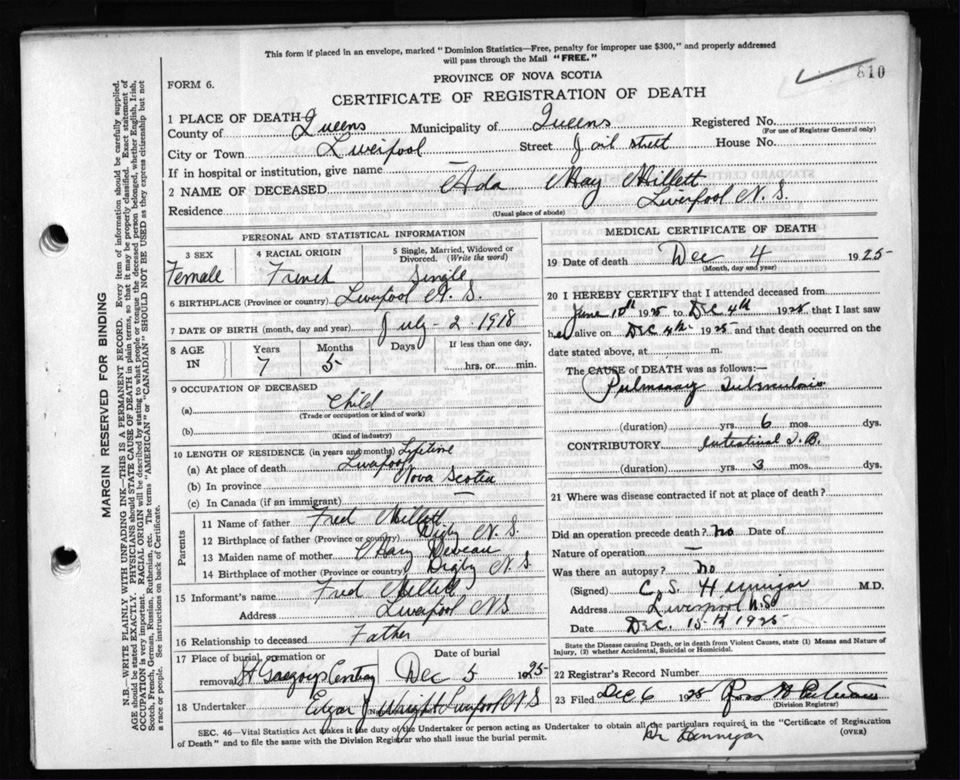 This form if placed in an envelope, marked "Dominion Statistics—Free, penalty for improper use $300," and properly addressed
will pass through the Mail "FREE."
810
PROVINCE OF NOVA SCOTIA
FORM 6.
CERTIFICATE OF REGISTRATION OF DEATH
1 PLACE OF DEATH
County of Queens Municipality of Queens Registered No.
(For use of Registrar General only)
City or Town Liverpool Street Jail street House No.
If in hospital or institution, give name —
2 NAME OF DECEASED Ada May Millett
Residence Liverpool N. S.
(Usual place of abode)
PERSONAL AND STATISTICAL INFORMATION
3 SEX Female
4 RACIAL ORIGIN French
5 Single, Married, Widowed or Divorced. (Write the word) Single
6 BIRTHPLACE (Province or country) Liverpool N. S.
7 DATE OF BIRTH (month, day and year) July - 2 - 1918
8 AGE IN Years 7 Months 5 Days If less than one day, hrs. or min.
9 OCCUPATION OF DECEASED
(a) Child
(Trade or occupation or kind of work)
(b)
(Kind of industry)
10 LENGTH OF RESIDENCE (in years and months) Lifetime
(a) At place of death Liverpool
(b) In province Nova Scotia
(c) In Canada (if an immigrant) —
Parents
11 Name of father Fred Millett
12 Birthplace of father (Province or country) Digby N. S.
13 Maiden name of mother Mary Deveau
14 Birthplace of mother (Province or country) Digby N. S.
15 Informant's name Fred Millett
Address Liverpool NS
16 Relationship to deceased Father
17 Place of burial, cremation or removal Date of burial
Dec 5 1925
18 Undertaker Edgar J Wright Liverpool N S
MEDICAL CERTIFICATE OF DEATH
19 Date of death Dec 4 1925
(Month, day and year)
20 I HEREBY CERTIFY that I attended deceased from
June 1925 to Dec 4th 1925 that I last saw
her alive on Dec 4th 1925 and that death occurred on the
date stated above, at m.
The CAUSE OF DEATH was as follows:—
Pulmonary Tuberculosis
(duration) yrs. 6 mos. dys.
CONTRIBUTORY Intestinal T. B.
(duration) yrs. 3 mos. dys.
21 Where was disease contracted if not at place of death?
Did an operation precede death? no Date of
Nature of operation —
Was there an autopsy? no
(Signed) C. S. Hennigar M.D.
Address Liverpool N.S.
Date Dec. 15th 1925
State the Disease causing Death, or in death from Violent Causes, state (1) Means and Nature of
Injury, (2) whether Accidental, Suicidal or Homicidal.
22 Registrar's Record Number
23 Filed Dec 6 1925
(Division Registrar)
SEC. 46—Vital Statistics Act makes it the duty of the Undertaker or person acting as Undertaker to obtain all the particulars required in the "Certificate of Registration
of Death" and to file the same with the Division Registrar who shall issue the burial permit.
Dr Hennigar
(OVER)
MARGIN RESERVED FOR BINDING
N.B.—WRITE PLAINLY WITH UNFADING INK—THIS IS A PERMANENT RECORD. Every item of information should be carefully supplied.
AGE should be stated EXACTLY. PHYSICIANS should STATE CAUSE OF DEATH in plain terms, so that it may be properly classified. Exact statement of
OCCUPATION is very important. RACIAL ORIGIN will be described by stating to what people or tongue the deceased person belonged, whether English, Irish,
Scotch, French, German, Russian, Ruthenian, etc. The terms "AMERICAN" or "CANADIAN" SHOULD NOT BE USED as they express citizenship but not
a race or people. See instructions on back of Certificate.